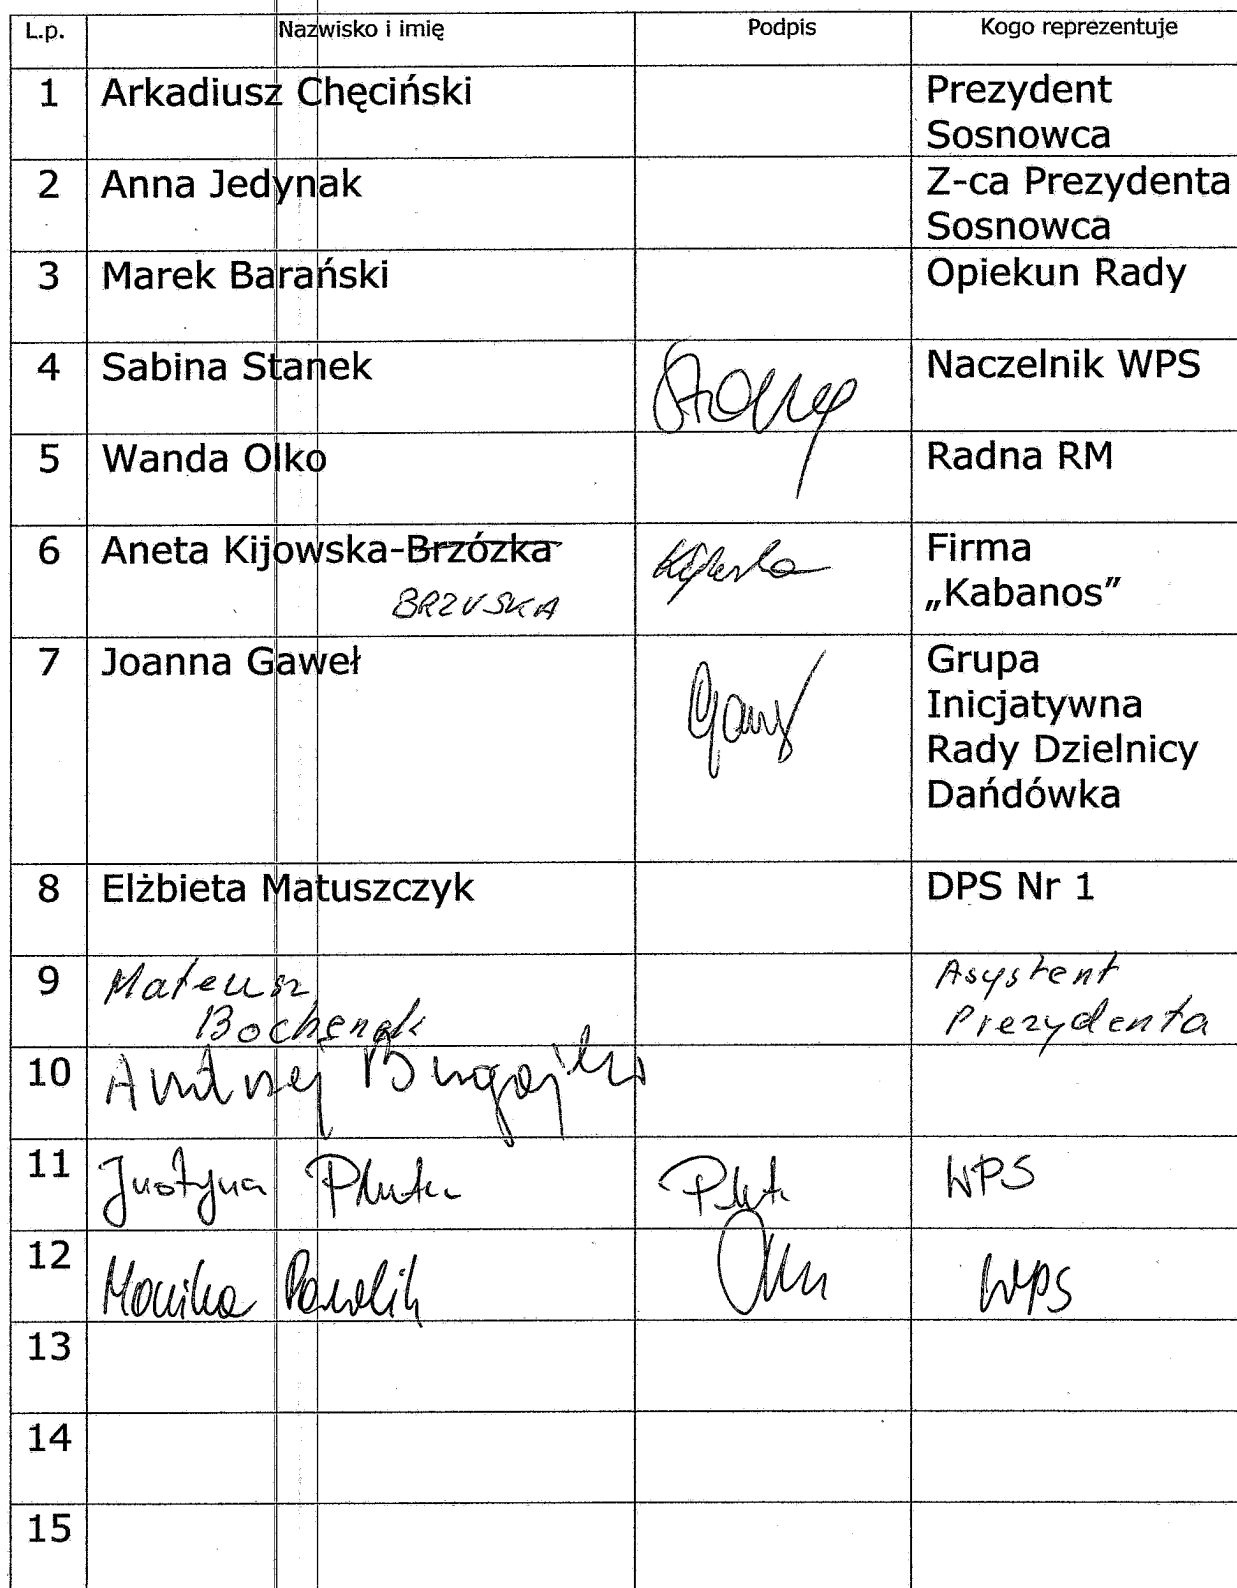 L.p. Nazwisko i imię Podpis Kogo reprezentuje
1 Arkadiusz Chęciński Prezydent
Sosnowca
2 Anna Jedynak Z-ca Prezydenta
Sosnowca
3 Marek Barański Opiekun Rady
4 Sabina Stanek Naczelnik WPS
5 Wanda Olko Radna RM
6 Aneta Kijowska-Brzózka Firma
BRZUSKA „Kabanos”
7 Joanna Gaweł Grupa
Inicjatywna
Rady Dzielnicy
Dańdówka
8 Elżbieta Matuszczyk DPS Nr 1
9 Mateusz Asystent
Bochenek Prezydenta
10 Andrzej
11 Justyna Pluta WPS
12 Monika WPS
13
14
15